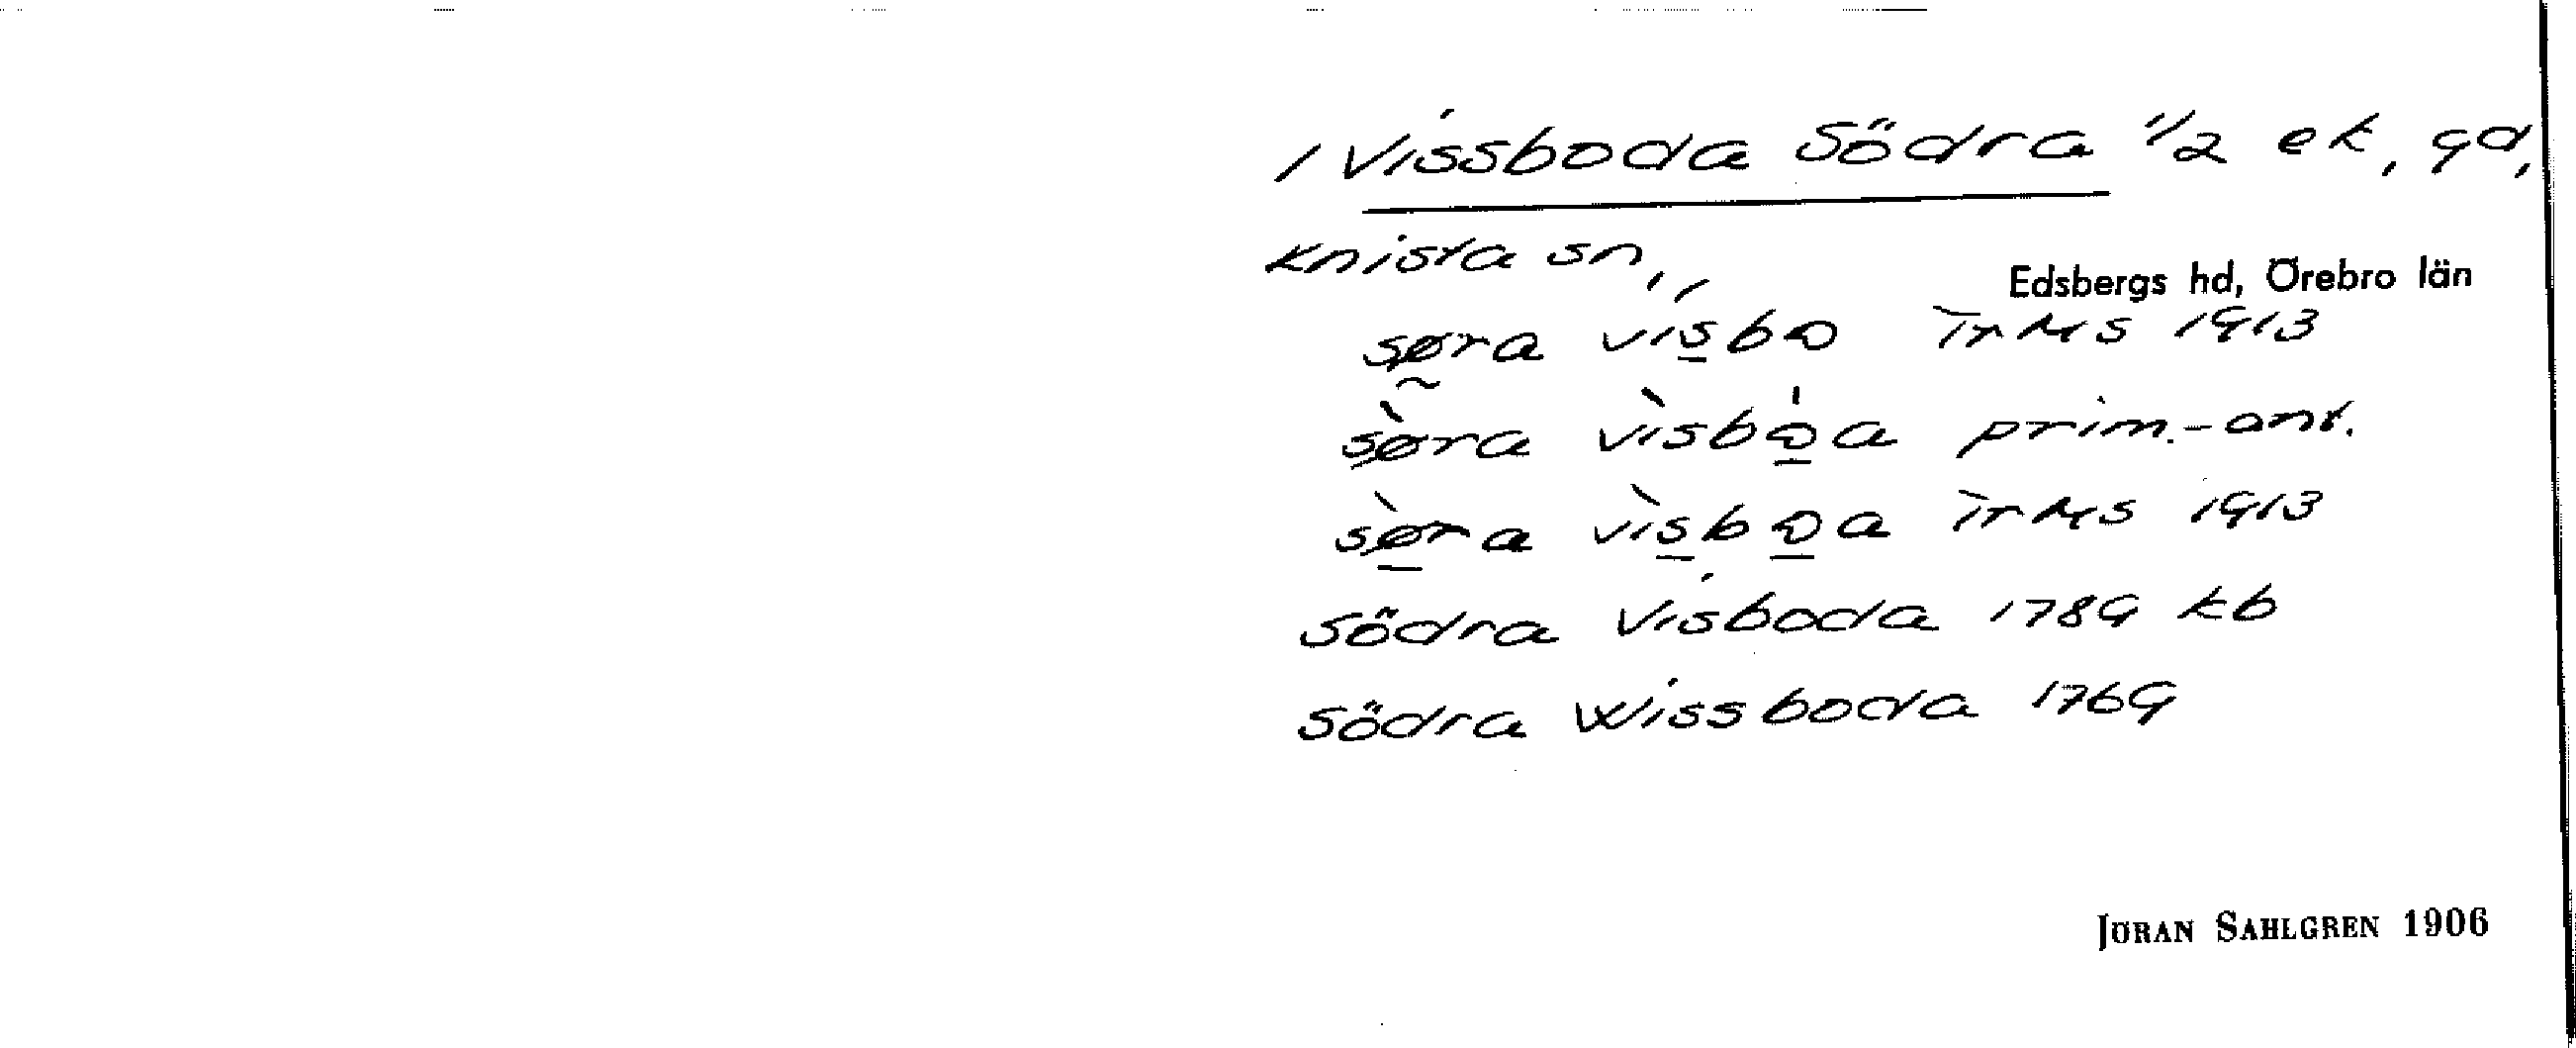 / Vissboda Södra 1/2 ek, gd,
Knista sn,
Edsbergs hd, Örebro län
søra visbo TrMs 1913
sø̀ra vìsbo̲̍a prim.-ant.
sø̲̀ra vìs̲bo̲a TrMs 1913
Södra Visboda 1789 kb
Södra Wissboda 1769
JÖRAN SAHLGREN 1906